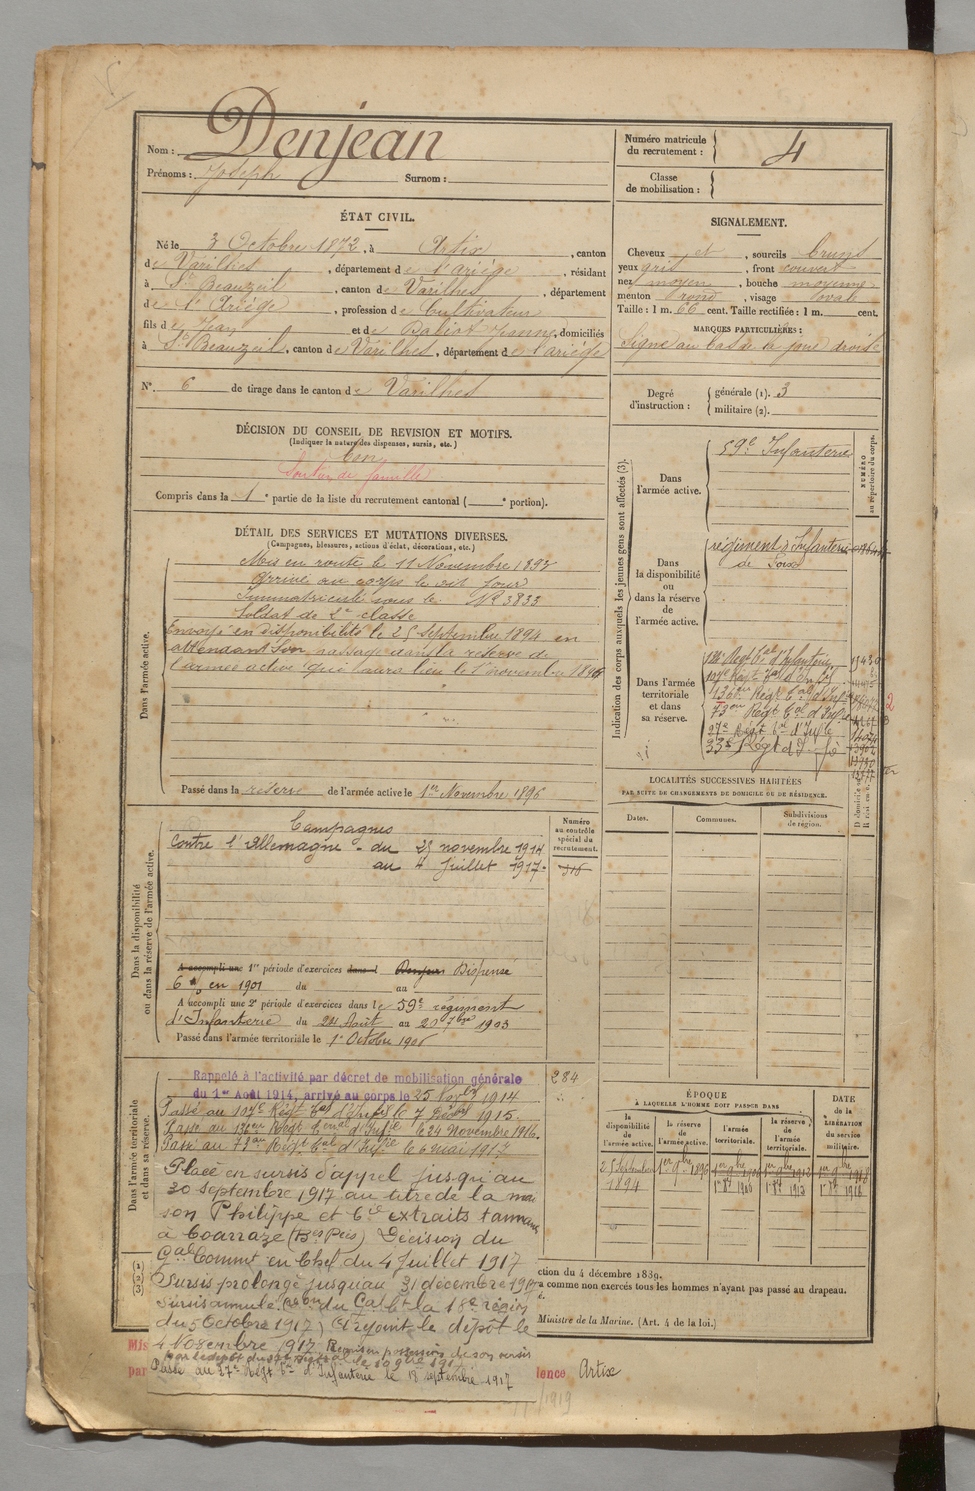 Nom : Denjean
Prénoms : Joseph Surnom :
Numéro matricule du recrutement : 4
Classe de mobilisation :
ÉTAT CIVIL.
Né le 3 Octobre 1872, à Artix, canton
de Varilhes, département de l'Ariége, résidant
à St Beauzeil, canton de Varilhes, département
de l'Ariége, profession de Cultivateur
fils de Jean et de Babiot Jeanne, domiciliés
à St Beauzeil, canton de Varilhes, département de l'ariége
N° 6 de tirage dans le canton de Varilhes
SIGNALEMENT.
Cheveux et, sourcils bruns
yeux gris, front couvert
nez moyen, bouche moyenne
menton rond, visage ovale
Taille : 1 m. 66 cent. Taille rectifiée : 1 m. cent.
MARQUES PARTICULIÈRES :
Signe au bas de la joue droite
Degré d'instruction : générale (1). 3
militaire (2).
DÉCISION DU CONSEIL DE REVISION ET MOTIFS.
(Indiquer la nature des dispenses, sursis, etc.)
bon
Soutien de famille
Compris dans la 1e partie de la liste du recrutement cantonal ( e portion).
DÉTAIL DES SERVICES ET MUTATIONS DIVERSES.
(Campagnes, blessures, actions d'éclat, décorations, etc.)
Dans l'armée active.
Mis en route le 11 Novembre 1893
arrivé au corps le dit jour
Immatriculé sous le N° 3833
Soldat de 2e classe
Envoyé en disponibilité le 25 Septembre 1894 en
attendant son passage dans la réserve de
l'armée active qui aura lieu le 1er novembre 1896
Passé dans la réserve de l'armée active le 1er Novembre 1896
Indication des corps auxquels les jeunes gens sont affectés (3).
NUMÉRO au répertoire du corps.
Dans l'armée active.
59e Infanterie
Dans la disponibilité ou dans la réserve de l'armée active.
régiment d'Infanterie
de Foix
Dans l'armée territoriale et dans sa réserve.
107e Régt tal d'Infie
136e Régt tal d'Infie
73e Régt tal d'Infie
27e Régt tal d'Infie
LOCALITÉS SUCCESSIVES HABITÉES
PAR SUITE DE CHANGEMENTS DE DOMICILE OU DE RÉSIDENCE.
Dates. Communes. Subdivisions de région.
Dans la disponibilité ou dans la réserve de l'armée active.
Numéro au contrôle spécial du recrutement.
316
Campagnes
Contre l'allemagne - du 25 novembre 1914
au 4 Juillet 1917 -
A accompli une 1re période d'exercices dans l Dispensé
6 en 1901 du au
A accompli une 2e période d'exercices dans le 59e régiment
d'Infanterie du 24 Août au 20 7bre 1903
Passé dans l'armée territoriale le 1er Octobre 1906
Dans l'armée territoriale et dans sa réserve.
284
Rappelé à l'activité par décret de mobilisation générale
du 1er Août 1914, arrivé au corps le 25 Novbre 1914
Passé au 107e Régt tal d'Infie le 7 1915.
Passé au 136e Régt tal d'Infie le 24 Novembre 1916.
Passé au 73e Régt tal d'Infie le 6 mai 1917
Placé en sursis d'appel jusqu'au
30 septembre 1917 au titre de la mai
son Philippe et Cie extraits tannants
à Coarraze (Bses Pées) Décision du
Gal Commt en Chef du 4 Juillet 1917
Sursis prolongé jusqu'au 31 décembre 1917
Sursis annulé (on du Gal Ct la 18e région
du 5 Octobre 1917) Rejoint le dépôt le
4 Novembre 1917 Remis en possession de son sursis
Passé au 27e Régt tal d'Infanterie le 18 septembre 1917
ÉPOQUE
À LAQUELLE L'HOMME DOIT PASSER DANS
la disponibilité de l'armée active.
la réserve de l'armée active.
l'armée territoriale.
la réserve de l'armée territoriale.
DATE de la LIBÉRATION du service militaire.
25 Septembre 1894
1er 9bre 1896
(1)
(2)
(3)
ction du 4 décembre 1889.
a comme non exercés tous les hommes n'ayant pas passé au drapeau.
Ministre de la Marine. (Art. 4 de la loi.)
Mis
par
dence Artix
1919